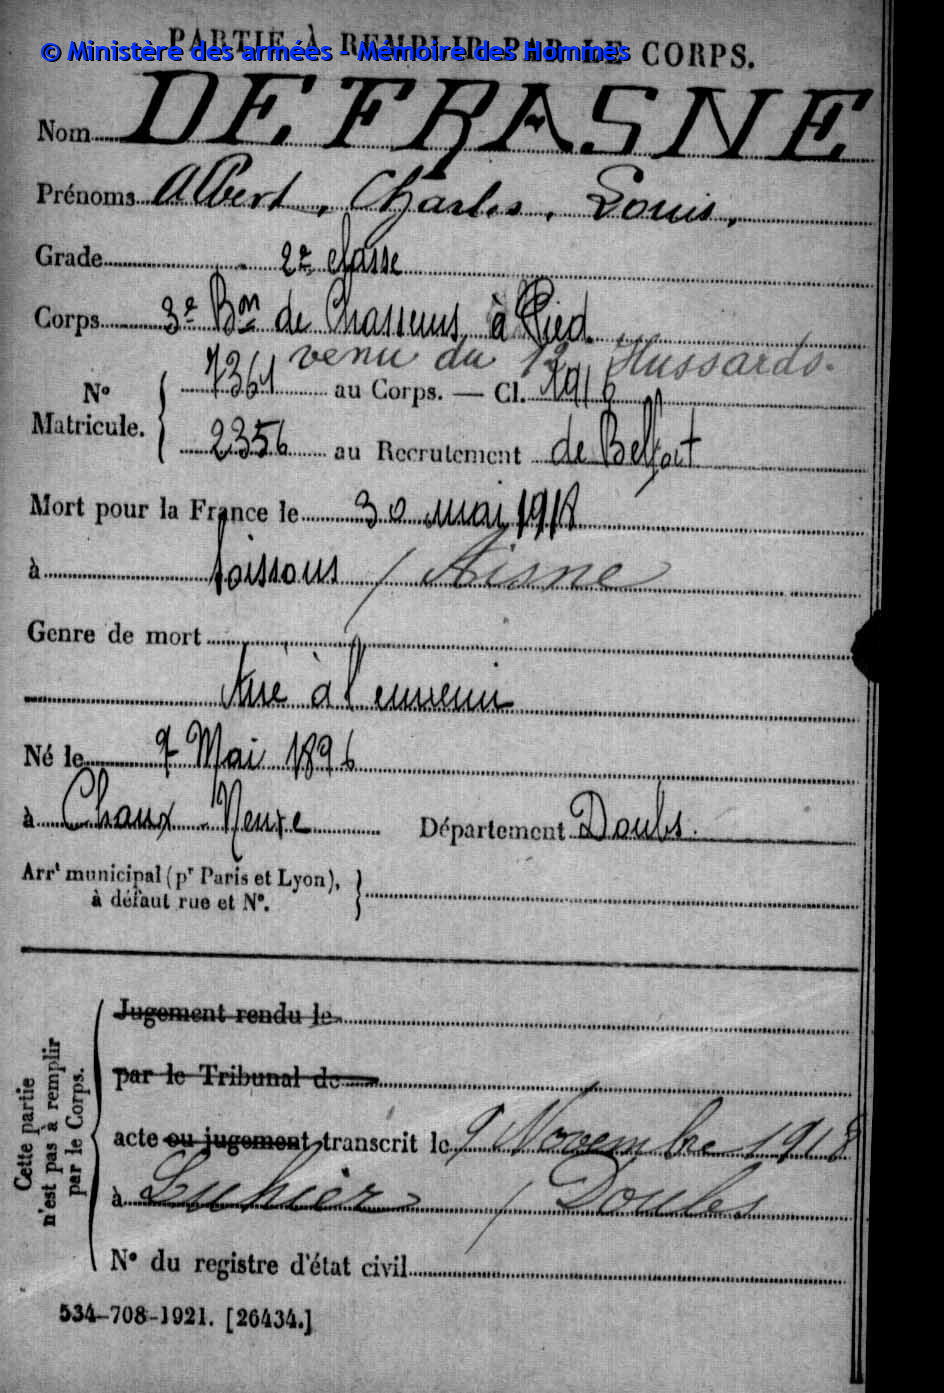 PARTIE À REMPLIR PAR LE CORPS.
© Ministère des armées - Mémoire des Hommes
Nom DEFRASNE
Prénoms Albert, Charles, Louis,
Grade 2e classe
Corps 3e Bon de Chasseurs à Pied.
venu du 12 Hussards.
No Matricule. { 7361 au Corps. — Cl. 1916
2356 au Recrutement de Belfort
Mort pour la France le 30 mai 1918
à Soissons / Aisne
Genre de mort
tué à l'ennemi
Né le 7 Mai 1896
à Chaux Neuve Département Doubs.
Arrt municipal (pr Paris et Lyon), à défaut rue et No. }
Cette partie n'est pas à remplir par le Corps. {
Jugement rendu le
par le Tribunal de
acte ou jugement transcrit le 9 Novembre 1918
à Luhier / Doubs
No du registre d'état civil
534-708-1921. [26434.]